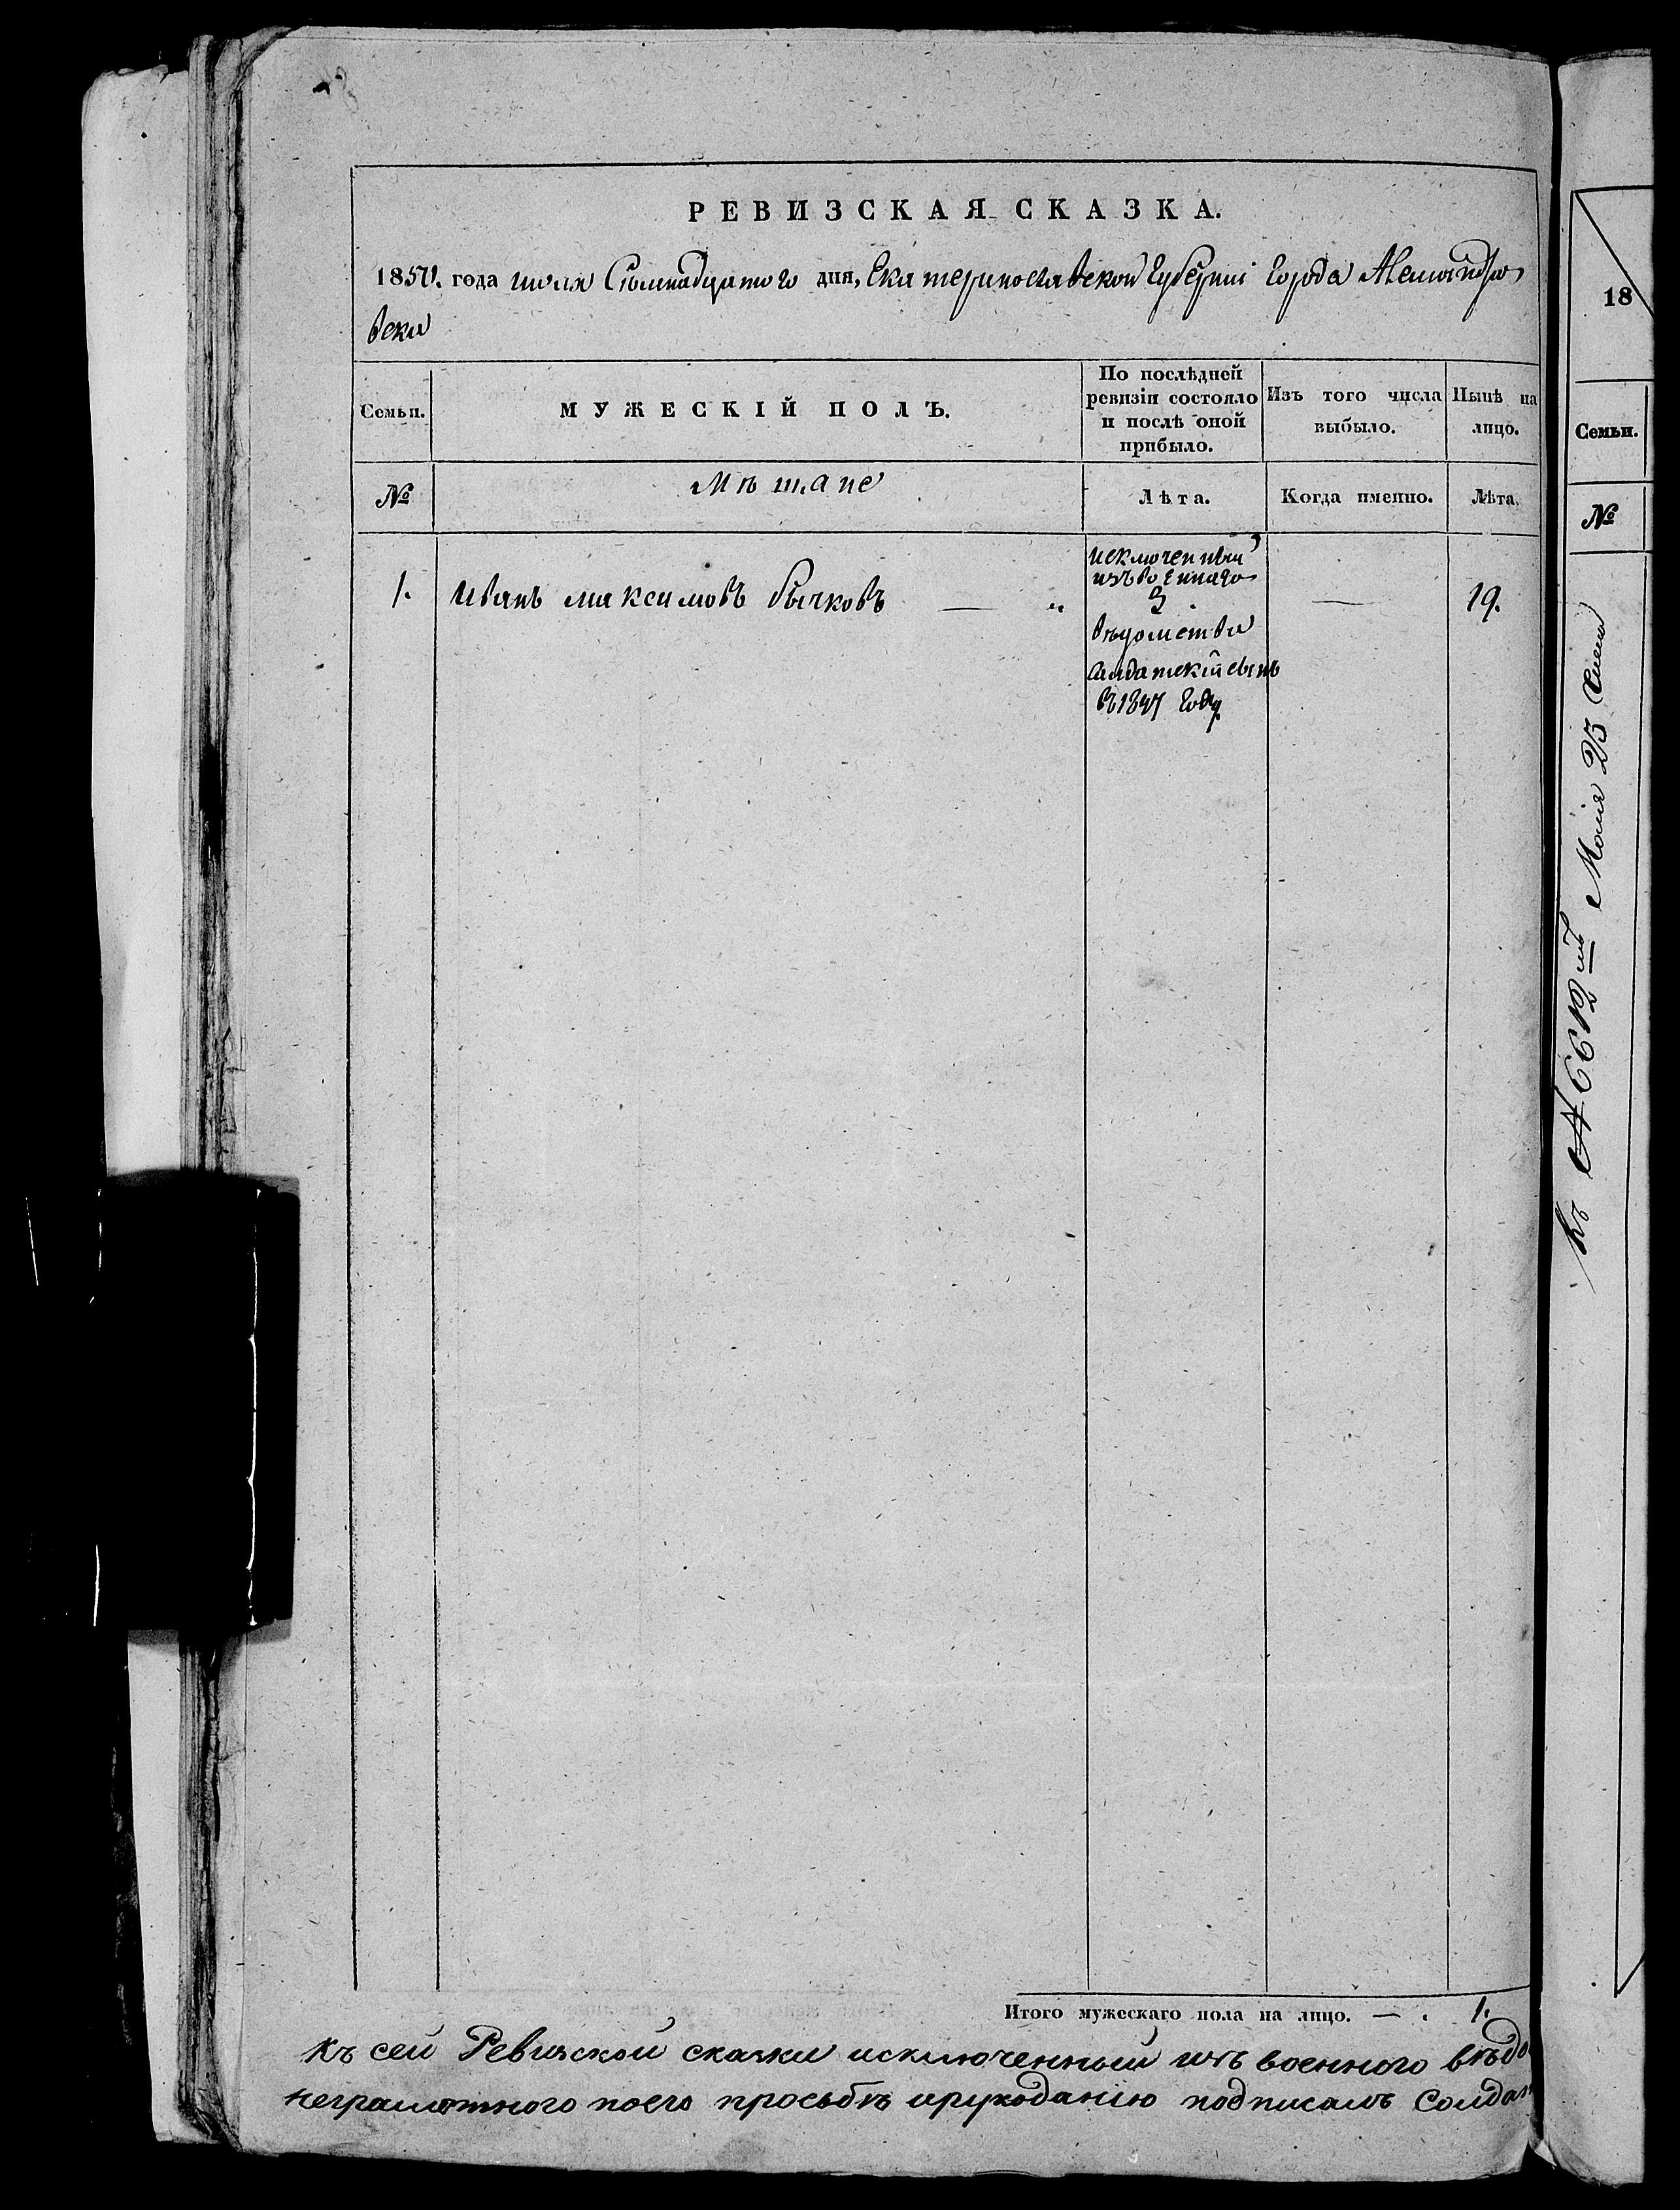 РЕВИЗСКАЯ СКАЗКА.
1850. года июля Семнадцатого дня, Екатеринославской Губерніи Города Александро
вска
Семьи.
МУЖЕСКІЙ ПОЛЪ.
По послѣдней
ревизіи состояло
и послѣ оной
прибыло.
Изъ того числа
выбыло.
Нынѣ на
лицо.
№
Мѣщане
Лѣта.
Когда именно.
Лѣта.
1. Иванъ максимовъ бычковъ — „
исключенный
изъ военнаго
вѣдомства
Салдатскій сынъ
въ 1847 году
—
19.
Итого мужескаго пола на лицо. — . 1.
къ сей Ревизской сказки исключенный изъ военного вѣдо
неграмотного поего просьбѣ ирукоданію подписалъ Солдат
18
Семьи.
№
къ № 6612 Июля 23